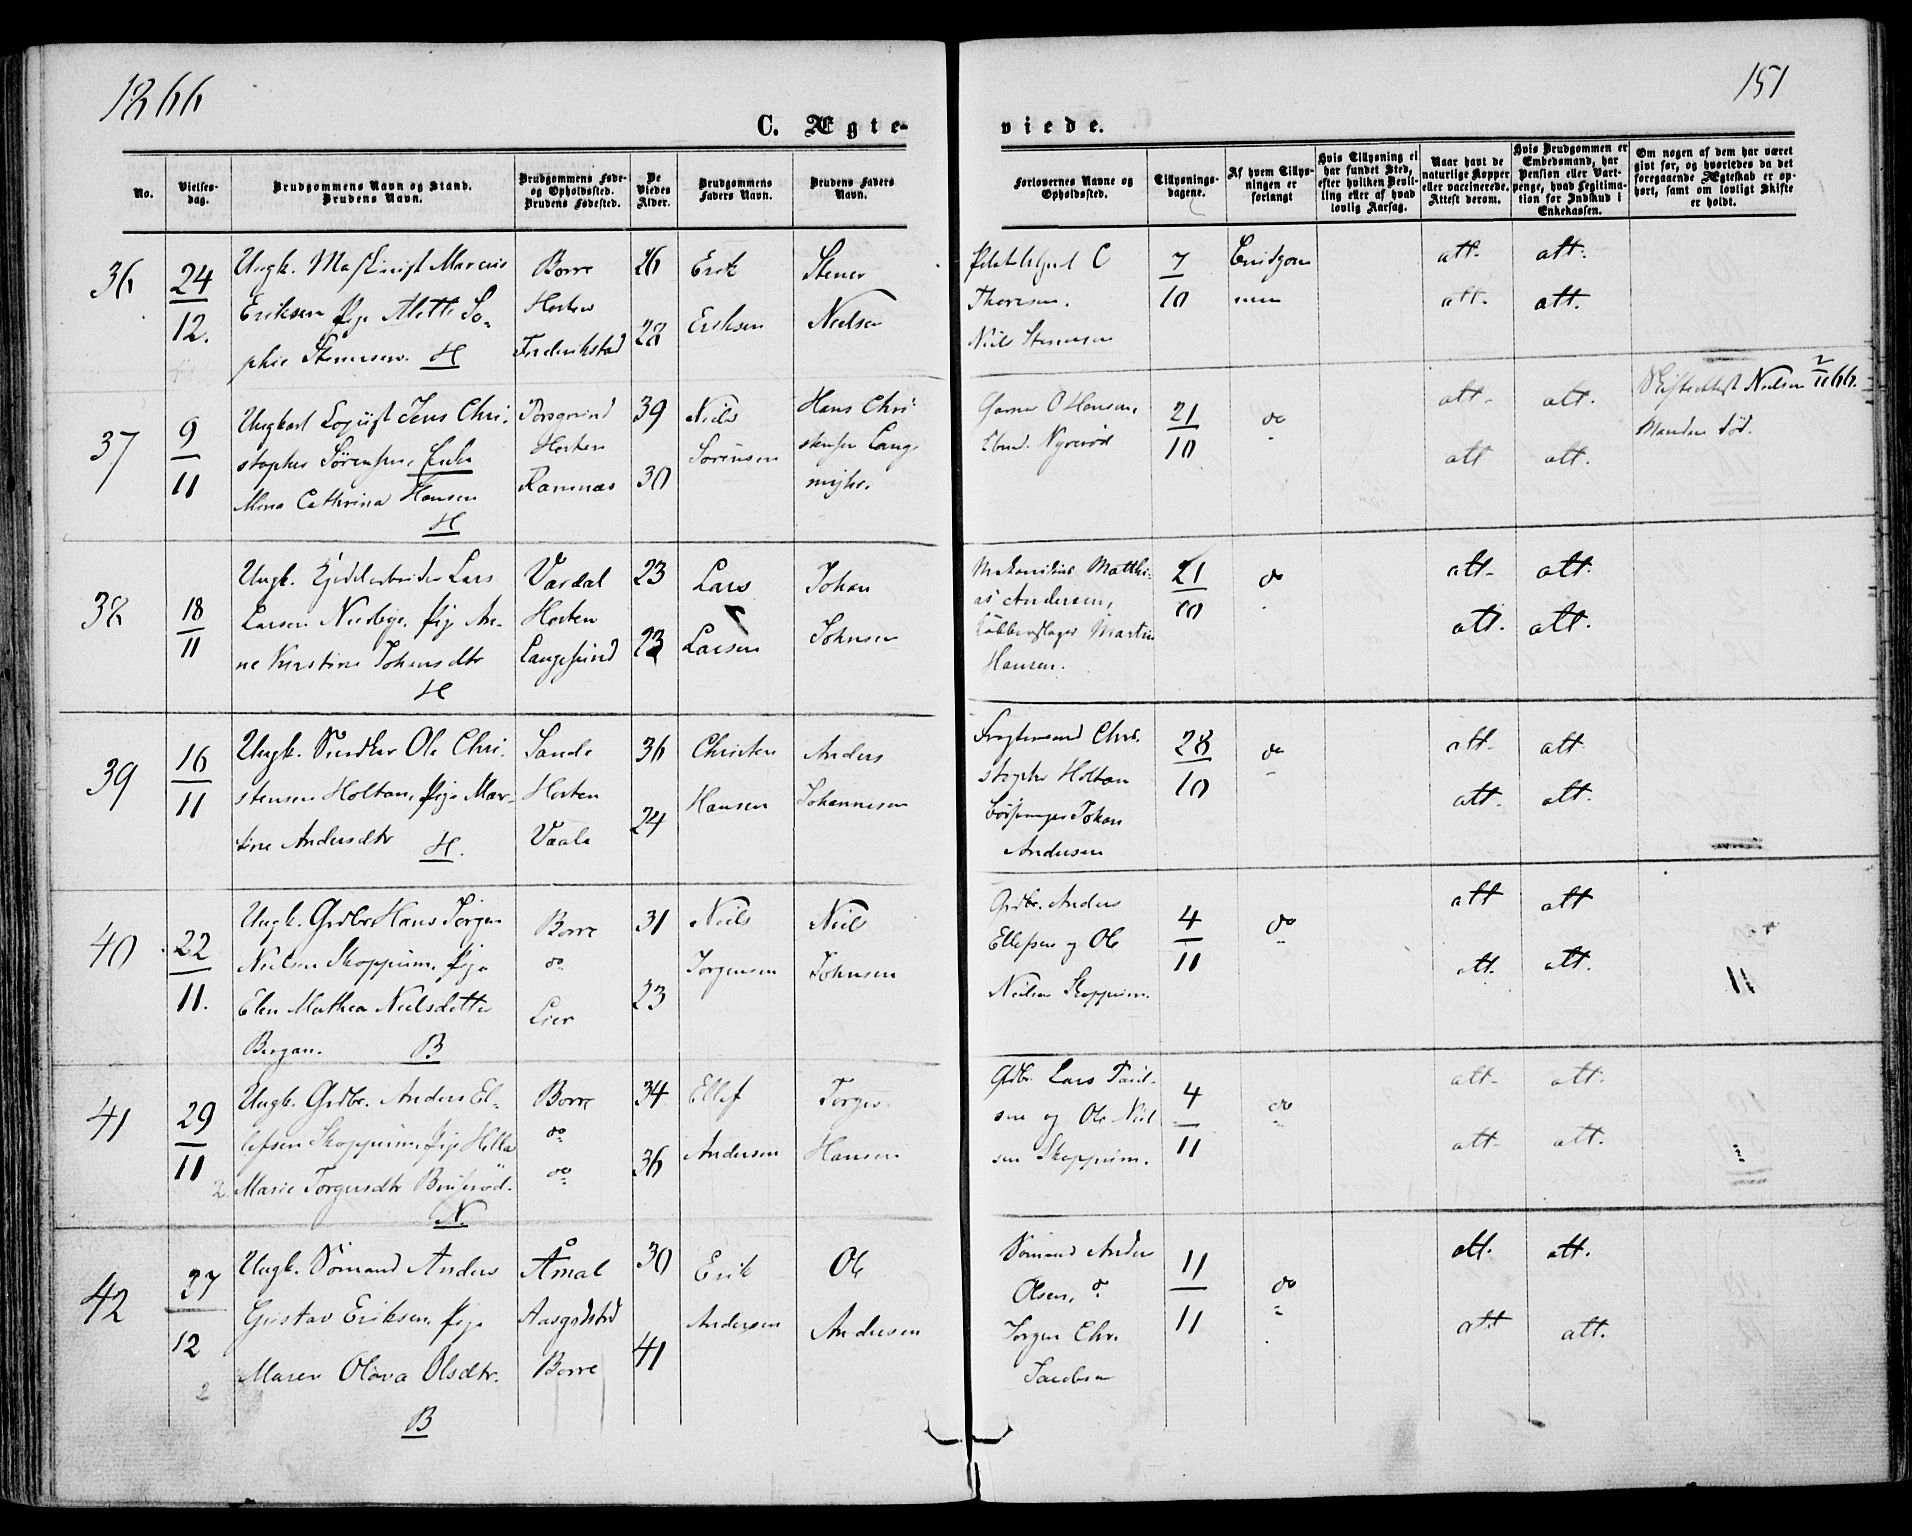 1866
151
C. Ægte-
viede.
No.
Vielses-
dag.
Brudgommens Navn og Stand.
Brudens Navn.
Brudgommens Føde-
og Opholdssted.
Brudens Fødested.
De
Viedes
Alder.
Brudgommens
Faders Navn.
Brudens Faders
Navn.
Forlovernes Navne og
Opholdssted.
Tillysnings-
dagene.
Af hvem Tillys-
ningen er
forlangt
Hvis Tillysning ei
har fundet Sted,
efter hvilken Bevil-
ling eller af hvad
lovlig Aarsag.
Naar havt de
naturlige Kopper
eller vaccinerede.
Attest derom.
Hvis Brudgommen er
Embedsmand, har
Pension eller Vart-
penge, hvad Legitima-
tion for Indskud i
Enkekassen.
Om nogen af dem har været
givt for, og hvorledes da det
foregaaende Ægteskab er op-
hørt, samt om lovligt Skifte
er holdt.
36
24/12.
Ungk. Marcus
Eriksen Pige Alette So-
phie Stenersen. H
Borre
Horten
Frederikstad
26
28
Erik
Eriksen
Stener
Nielsen
C
Thoresen.
Niels Stenersen
7/10
Brudgom
men
att. att.
att. att.
37
9/11
Ungkarl Logiist Jens Chri-
stopher Sørensen, Enke
Mina Cathrina Hansen
H
Porsgrund
Horten
Ramnæs
39
30
Niels
Sørensen
Hans Chri
stensen Lang-
O Hansen,
Nyerød
21/10
do
att. att.
att att.
Nielsen 2/11 66.
Manden død.
38
18/11
Ungk. Kjedelarbeider Lars
Larsen Pige An-
ne Kirstine Johansdtr
H
Vardal
Horten
Langesund
23
23
Lars
Larsen
Johan
Johnsen
Matthi-
as Andersen,
Martin
Hansen.
21/10
do
att. att.
att. att.
39
16/11
Ungk. Snedker Ole Chri-
stensen Holtan, Pige Mar-
tine Andersdtr H.
Sande
Horten
Vaale
36
24
Christen
Hansen
Anders
Johannesen
Chri-
stopher Holtan
Johan
Andersen
28/10
do
att. att
att. att.
40
22/11.
Ungk. Grdbr Hans Jørgen
Nielsen Skoppum, Pige
Elen Mathea Nielsdatter
Bergan. B
Borre
do
Lier
31
23
Niels
Jørgensen
Niels
Johnsen
Grdbr. Anders
Ellefsen og Ole
Nielsen Skoppum.
4/11
do
att att
att. att.
11
41
29/11
Ungk. Grdbr. Anders El-
lefsen Skoppum, Pige Hella
Marie Torgersdtr
N.
Borre
do
do
34
36
Ellef
Andersen
Torger
Hansen
Grdbr. Lars Paul-
sen og Ole Niel
sen Skoppum.
4/11
do
att. att.
att. att.
42
27/12
Ungk. Sømand Anders
Gustav Eriksen, Pige
Maren Olava Olsdtr.
B
Åmal
Aasgrdstrd
Borre
30
41
Erik
Andersen
Ole
Andersen
Sømand Anders
Olsen, o.
Jørgen Chr.
Jacobsen
11/11
do
att. att.
att att.